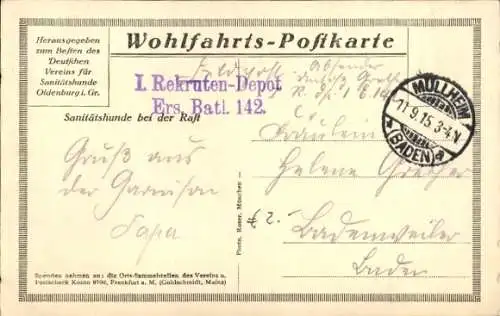 Herausgegeben
zum Besten des
Deutschen
Vereins für
Sanitätshunde
Oldenburg i. Gr.
Wohlfahrts-Postkarte
Feldpost Absender
I. Rekruten-Depot
Ers. Batl. 142.
MÜLLHEIM
11.9.15. 3-4.N
(BADEN)
Sanitätshunde bei der Rast
Fräulein
Helene Grether
Badenweiler
Baden
Gruß aus
der Garnison
Papa
Photo. Bauer, München
Spenden nehmen an: die Orts-Sammelstellen des Vereins u.
Postscheck Konto 9706, Frankfurt a. M. (Goldschmidt, Mainz)